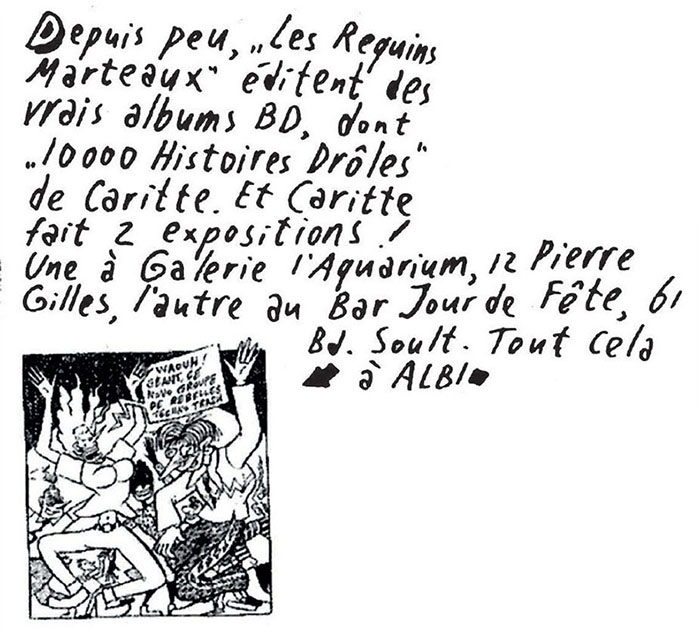 Depuis peu, „Les Requins
Marteaux" éditent des
vrais albums BD, dont
„10000 Histoires Drôles"
de Caritte. Et Caritte
fait 2 expositions!
Une à Galerie l'Aquarium, 12 Pierre
Gilles, l'autre au Bar Jour de Fête, 61
Bd. Soult. Tout cela
à ALBI
WAOUH!
GEANT, CE
NOUV GROUPE
DE REBELLES
TECHNO TRASH